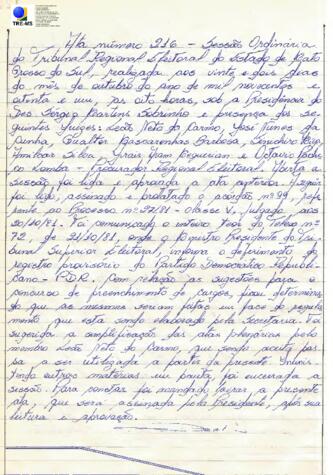 TRE-MS
Ata número 216 - Sessão Ordinária
do Tribunal Regional Eleitoral do Estado de Mato
Grosso do Sul, realizada aos vinte e dois dias
do mês de outubro do ano de mil novecentos e
oitenta e um, às oito horas, sob a Presidência do
Des. Sérgio Martins Sobrinho e presença dos se-
guintes Juízes: Leão Neto do Carmo, José Nunes da
Cunha, Barbosa,
Amilcar Silva, e
- Procurador Regional Eleitoral. Aberta a
sessão foi lida e aprovada a ata anterior. A seguir
foi lido, assinado e prestado o acórdão nº 99, refe-
rente ao Processo nº 37/81 - classe V, julgado aos
20/10/81. Foi comunicado o inteiro teor do telex nº
72, de 21/10/81 onde o Ministro Presidente do Tri-
bunal Superior Eleitoral, informa o deferimento do
registro provisório do Partido Democrático Republi-
cano - PDR. Com relação às sugestões para o
concurso de preenchimento de cargos, ficou determina-
do que as mesmas seriam feitas em face do regula-
mento que está sendo elaborado pela Secretaria. Foi
sugerida a simplificação das atas pelo
membro Leão Neto do Carmo, que sendo aceita pas-
sa a ser utilizada a partir da presente. Inexis-
tindo outras matérias em pauta foi encerrada a
sessão. Para constar foi mandado lavrar a presente
ata, que será assinada pelo Presidente, após sua
leitura e aprovação.